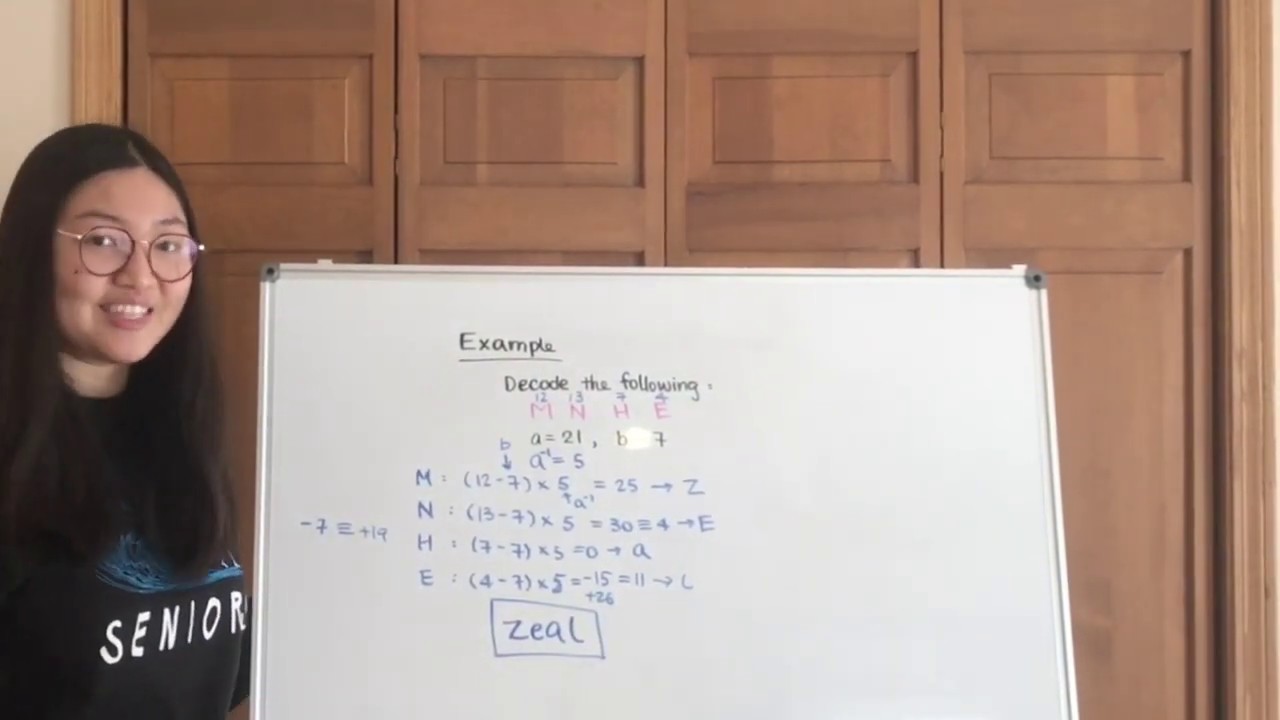 Example
Decode the following:
12 13 7 4
M N H E
a = 21, b 7
b ↓ a⁻¹ = 5
M : (12-7) × 5 = 25 → Z
↑a⁻¹
N : (13-7) × 5 = 30 ≡ 4 → E
-7 ≡ +19
H : (7-7) × 5 = 0 → a
E : (4-7) × 5 = -15 = 11 → L
+26
zeal
SENIOR